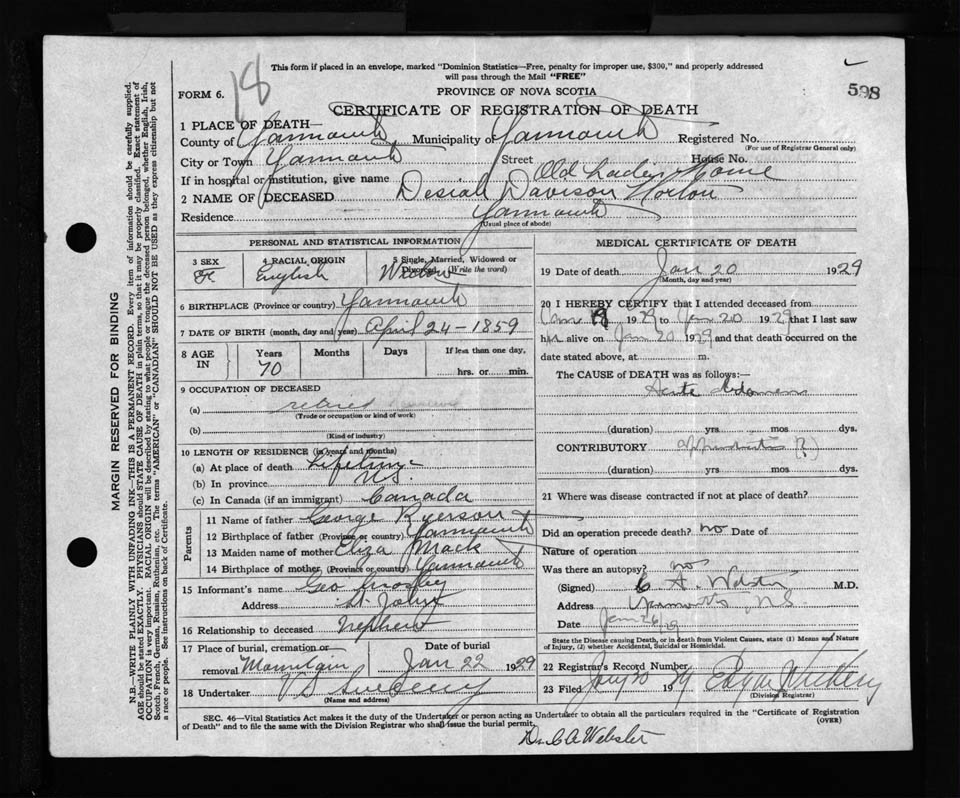 18
This form if placed in an envelope, marked "Dominion Statistics—Free, penalty for improper use, $300," and properly addressed
will pass through the Mail "FREE"
598
FORM 6.
PROVINCE OF NOVA SCOTIA
CERTIFICATE OF REGISTRATION OF DEATH
1 PLACE OF DEATH—
County of Yarmouth Municipality of Yarmouth Registered No.
(For use of Registrar General only)
City or Town Yarmouth Street House No.
If in hospital or institution, give name Old Ladies Home
2 NAME OF DECEASED Desiah Davison Horton
Residence Yarmouth
(Usual place of abode)
MARGIN RESERVED FOR BINDING
N.B.—WRITE PLAINLY WITH UNFADING INK—THIS IS A PERMANENT RECORD. Every item of information should be carefully supplied.
AGE should be stated EXACTLY. PHYSICIANS should STATE CAUSE OF DEATH in plain terms, so that it may be properly classified. Exact statement of
OCCUPATION is very important. RACIAL ORIGIN will be described by stating to what people or tongue the deceased person belonged, whether English, Irish,
Scotch, French, German, Russian, Ruthenian, etc. The terms "AMERICAN" or "CANADIAN" SHOULD NOT BE USED as they express citizenship but not
a race or people. See instructions on back of Certificate.
PERSONAL AND STATISTICAL INFORMATION
3 SEX 4 RACIAL ORIGIN 5 Single, Married, Widowed or
Divorced (Write the word)
Fe English Widow
6 BIRTHPLACE (Province or country) Yarmouth
7 DATE OF BIRTH (month, day and year) April 24-1859
8 AGE IN Years Months Days If less than one day,
70 hrs. or min.
9 OCCUPATION OF DECEASED
(a) retired
(Trade or occupation or kind of work)
(b)
(Kind of industry)
10 LENGTH OF RESIDENCE (in years and months)
(a) At place of death Lifetime
(b) In province N.S.
(c) In Canada (if an immigrant) Canada
Parents
11 Name of father George Ryerson
12 Birthplace of father (Province or country) Yarmouth
13 Maiden name of mother Eliza Mack
14 Birthplace of mother (Province or country) Yarmouth
15 Informant's name Geo
Address St. John
16 Relationship to deceased Nephew
17 Place of burial, cremation or removal Mountain
Date of burial Jan 22 1929
18 Undertaker
(Name and address)
MEDICAL CERTIFICATE OF DEATH
19 Date of death Jan 20 1929
(Month, day and year)
20 I HEREBY CERTIFY that I attended deceased from
Jan 1929 to Jan 20 1929 that I last saw
her alive on Jan 20 1929 and that death occurred on the
date stated above, at m.
The CAUSE of DEATH was as follows:—
Acute Abdomen
(duration) yrs mos dys.
CONTRIBUTORY appendicitis (?)
(duration) yrs mos dys.
21 Where was disease contracted if not at place of death?
Did an operation precede death? no Date of
Nature of operation
Was there an autopsy? no
(Signed) C A. Webster M.D.
Address Yarmouth, N.S.
Date Jan 26/29
State the Disease causing Death, or in death from Violent Causes, state (1) Means and Nature
of Injury, (2) whether Accidental, Suicidal or Homicidal.
22 Registrar's Record Number
23 Filed Jany 30 1929
(Division Registrar)
SEC. 46—Vital Statistics Act makes it the duty of the Undertaker or person acting as Undertaker to obtain all the particulars required in the "Certificate of Registration
of Death" and to file the same with the Division Registrar who shall issue the burial permit.
(OVER)
Dr. C A Webster